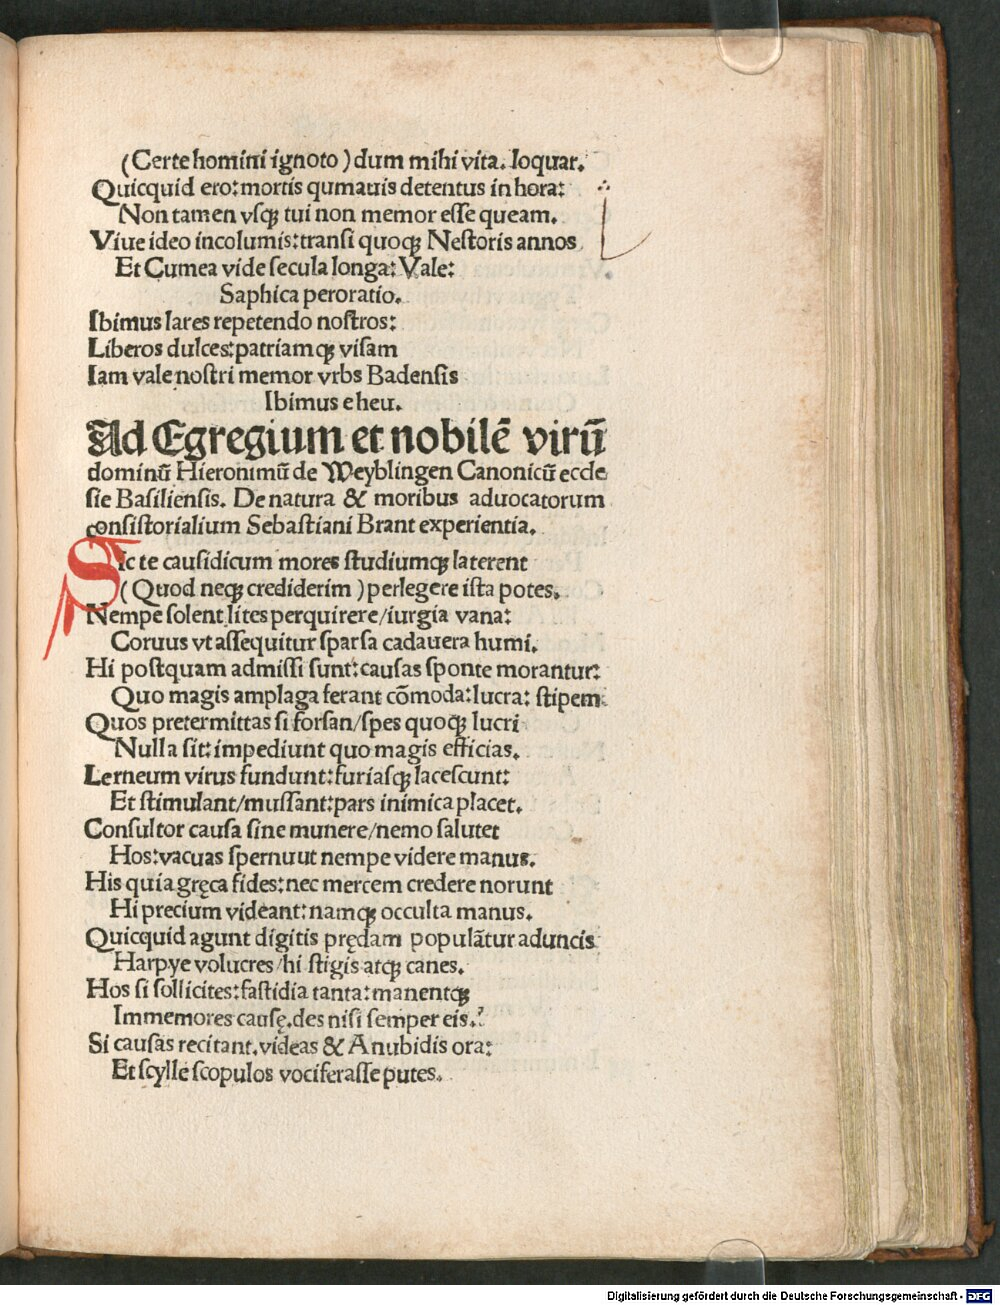 (Certe homini ignoto) dum mihi vita. loquar.
Quicquid ero: mortis qumauis detentus in hora:
Non tamen vsqꝫ tui non memor esse queam.
Viue ideo incolumis: transi quoqꝫ Nestoris annos
Et Cumea vide secula longa: Vale:
Saphica peroratio.
Ibimus lares repetendo nostros:
Liberos dulces: patriamqꝫ visam
Iam vale nostri memor vrbs Badensis
Ibimus eheu.
Ad Egregium et nobilē virū
dominū Hieronimū de Weyblingen Canonicū eccle
sie Basiliensis. De natura & moribus aduocatorum
consistorialium Sebastiani Brant experientia.
Sic te causidicum mores studiumqꝫ laterent
(Quod neqꝫ crediderim) perlegere ista potes.
Nempe solent lites perquirere/iurgia vana:
Coruus vt assequitur sparsa cadauera humi.
Hi postquam admissi sunt: causas sponte morantur:
Quo magis amplaga ferant cōmoda: lucra: stipem:
Quos pretermittas si forsan/spes quoqꝫ lucri
Nulla sit: impediunt quo magis efficias.
Lerneum virus fundunt: furiasqꝫ lacescunt:
Et stimulant/mussant: pars inimica placet.
Consultor causa sine munere/nemo salutet
Hos: vacuas spernuut nempe videre manus.
His quia gręca fides: nec mercem credere norunt
Hi precium videant: namqꝫ occulta manus.
Quicquid agunt digitis prędam populātur aduncis
Harpye volucres/hi stigis atqꝫ canes.
Hos si sollicites: fastidia tanta: manentqꝫ
Immemores causę. des nisi semper eis.
Si causas recitant. videas & Anubidis ora:
Et scylle scopulos vociferasse putes.
Digitalisierung gefördert durch die Deutsche Forschungsgemeinschaft - DFG